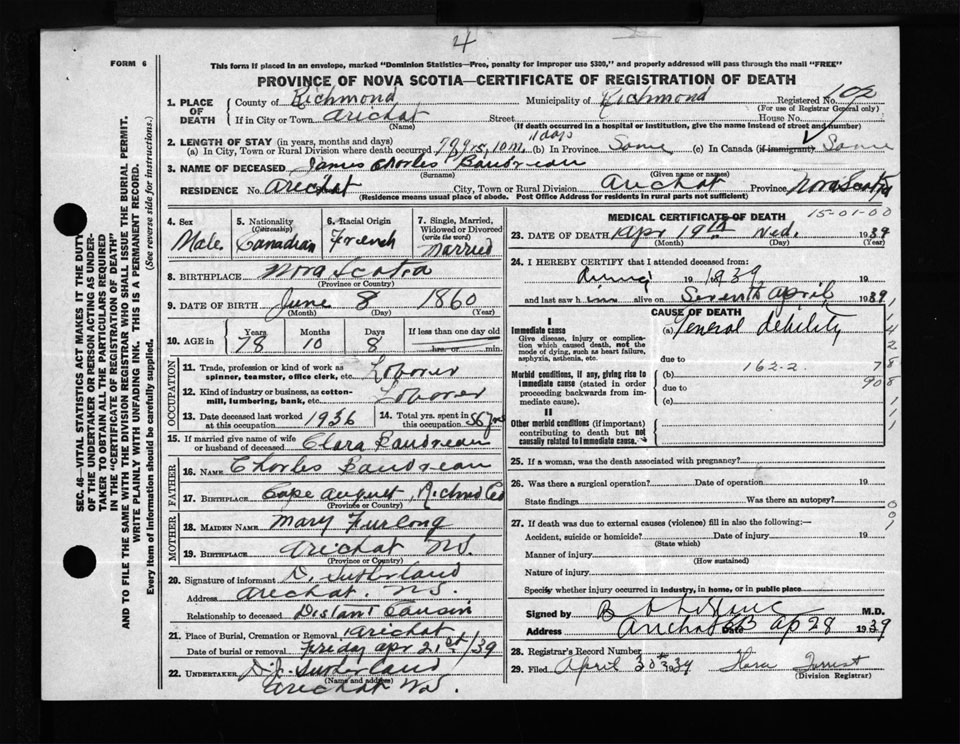 4
FORM 6
This form if placed in an envelope, marked "Dominion Statistics—Free, penalty for improper use $300," and properly addressed will pass through the mail "FREE"
PROVINCE OF NOVA SCOTIA—CERTIFICATE OF REGISTRATION OF DEATH
SEC. 46—VITAL STATISTICS ACT MAKES IT THE DUTY
OF THE UNDERTAKER OR PERSON ACTING AS UNDER-
TAKER TO OBTAIN ALL THE PARTICULARS REQUIRED
IN THE "CERTIFICATE OF REGISTRATION OF DEATH"
AND TO FILE THE SAME WITH THE DIVISION REGISTRAR WHO SHALL ISSUE THE BURIAL PERMIT.
WRITE PLAINLY WITH UNFADING INK. THIS IS A PERMANENT RECORD.
Every item of Information should be carefully supplied. (See reverse side for instructions.)
1. PLACE OF DEATH County of Richmond Municipality of Richmond Registered No. 102
(For use of Registrar General only)
If in City or Town Arichat Street House No.
(Name) (If death occurred in a hospital or institution, give the name instead of street and number)
2. LENGTH OF STAY (in years, months and days) 11 days
(a) In City, Town or Rural Division where death occurred 78 yrs, 10 m. (b) In Province Same (c) In Canada (if immigrant) Same
3. NAME OF DECEASED James Charles Baudreau
(Surname) (Given name or names)
RESIDENCE No. Arichat City, Town or Rural Division Arichat Province Nova Scotia
(Residence means usual place of abode. Post Office Address for residents in rural parts not sufficient)
4. Sex 5. Nationality (Citizenship) 6. Racial Origin 7. Single, Married, Widowed or Divorced (write the word)
Male Canadian French Married
8. BIRTHPLACE Nova Scotia
(Province or Country)
9. DATE OF BIRTH June 8 1860
(Month) (Day) (Year)
10. AGE in Years Months Days If less than one day
78 10 8 hrs. or min.
OCCUPATION
11. Trade, profession or kind of work as spinner, teamster, office clerk, etc. Laborer
12. Kind of industry or business, as cotton-mill, lumbering, bank, etc. Laborer
13. Date deceased last worked at this occupation 1936 14. Total yrs. spent in this occupation 56 yrs
15. If married give name of wife or husband of deceased Clara Baudreau
FATHER
16. NAME Charles Baudreau
17. BIRTHPLACE Cape August, Richmd Co
(Province or Country)
MOTHER
18. MAIDEN NAME Mary Furlong
19. BIRTHPLACE Arichat N.S.
(Province or Country)
20. Signature of informant D. Sutherland
Address Arichat. N.S.
Relationship to deceased Distant Cousin
21. Place of Burial, Cremation or Removal Arichat
Date of burial or removal Friday Apr 21st/39
22. UNDERTAKER D. J. Sutherland
(Name and address)
Arichat N.S.
MEDICAL CERTIFICATE OF DEATH
15-01-00
23. DATE OF DEATH Apr 19th Wed. 1939
(Month) (Day)
24. I HEREBY CERTIFY that I attended deceased from:
During 1939
and last saw him alive on Seventh April 1939
CAUSE OF DEATH
I
Immediate cause (a) General debility
Give disease, injury or complication which caused death, not the mode of dying, such as heart failure, asphyxia, asthenia, etc.
due to
Morbid conditions, if any, giving rise to immediate cause (stated in order proceeding backwards from immediate cause). (b) 162-2.
due to
(c)
II
Other morbid conditions (if important) contributing to death but not causally related to immediate cause.
25. If a woman, was the death associated with pregnancy?
26. Was there a surgical operation? Date of operation 19
State findings Was there an autopsy?
27. If death was due to external causes (violence) fill in also the following:—
Accident, suicide or homicide? Date of injury 19
(State which)
Manner of injury
(How sustained)
Nature of injury
Specify whether injury occurred in industry, in home, or in public place
Signed by M.D.
Address Arichat Date Ap 28 1939
28. Registrar's Record Number
29. Filed April 30th 1939
(Division Registrar)